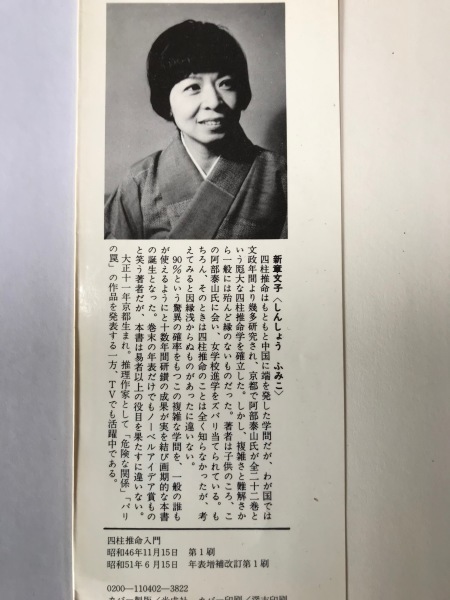 新章文子〈しんしょう ふみこ〉
四柱推命はもともと中国に端を発した学問だが、わが国では
文政年間より幾多研究され、京都で阿部泰山氏が全二十二巻と
いう厖大な四柱推命学を確立した。しかし、複雑さと難解さか
ら一般には殆んど縁のないものだった。著者は子供のころ、こ
の阿部泰山氏に会い、女学校進学をズバリ当てられている。も
ちろん、そのときは四柱推命のことは全く知らなかったが、考
えてみると因縁浅からぬものがあったに違いない。
90%という驚異の確率をもつこの複雑な学問を、一般の誰も
が使えるようにと十数年間研鑽の成果が実を結び画期的な本書
の誕生となった。巻末の年表だけでもノーベルアイデア賞もの
と笑う著者だが、本書は易者以上の役目を果たすに違いない。
大正十一年京都生まれ。推理作家として「危険な関係」「バリ
の罠」の作品を発表する一方、TVでも活躍中である。
四柱推命入門
昭和46年11月15日 第1刷
昭和51年6月15日 年表増補改訂第1刷
0200—110402—3822